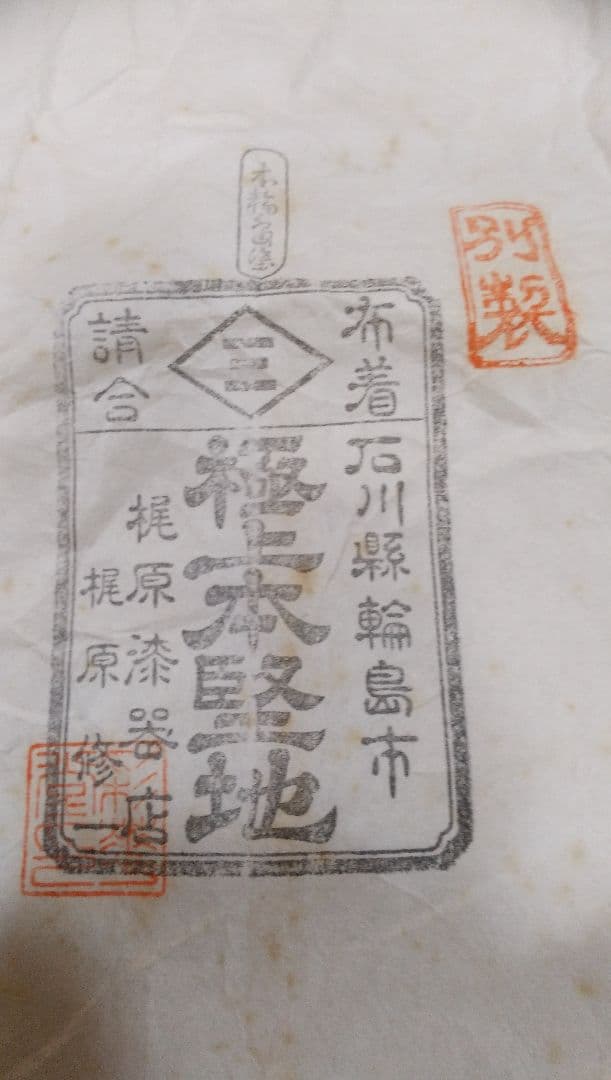 別製
本輪島塗
布着
三
請合
石川縣輪島市
極上本堅地
梶原漆器店
梶原修一